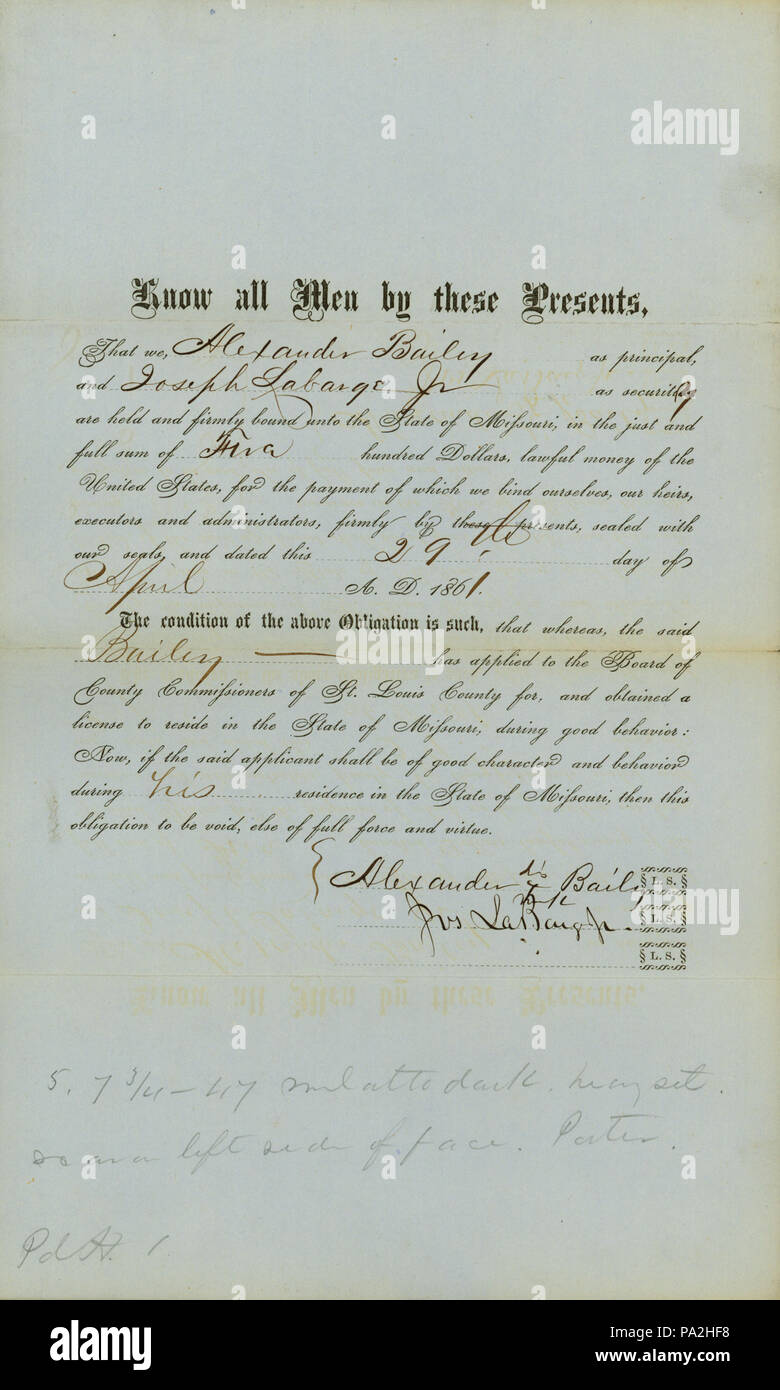 Know all Men by these Presents,
That we, Alexander Bailey as principal,
and Joseph Labarge Jr as security
are held and firmly bound unto the State of Missouri, in the just and
full sum of Five hundred Dollars, lawful money of the
United States, for the payment of which we bind ourselves, our heirs,
executors and administrators, firmly by these presents, sealed with
our seals, and dated this 29th day of
April A. D. 1861.
The condition of the above Obligation is such, that whereas, the said
Bailey has applied to the Board of
County Commissioners of St. Louis County for, and obtained a
license to reside in the State of Missouri, during good behavior:
Now, if the said applicant shall be of good character and behavior
during his residence in the State of Missouri, then this
obligation to be void, else of full force and virtue.
Alexander his Bailey L. S.
mark
Jos LaBarge Jr. L. S.
L. S.
5. 7 3/4 - 47 mulatto dark. heavy set.
scar on left side of face. Porter.
Pd
alamy
alamy
Image ID: PA2HF8
www.alamy.com